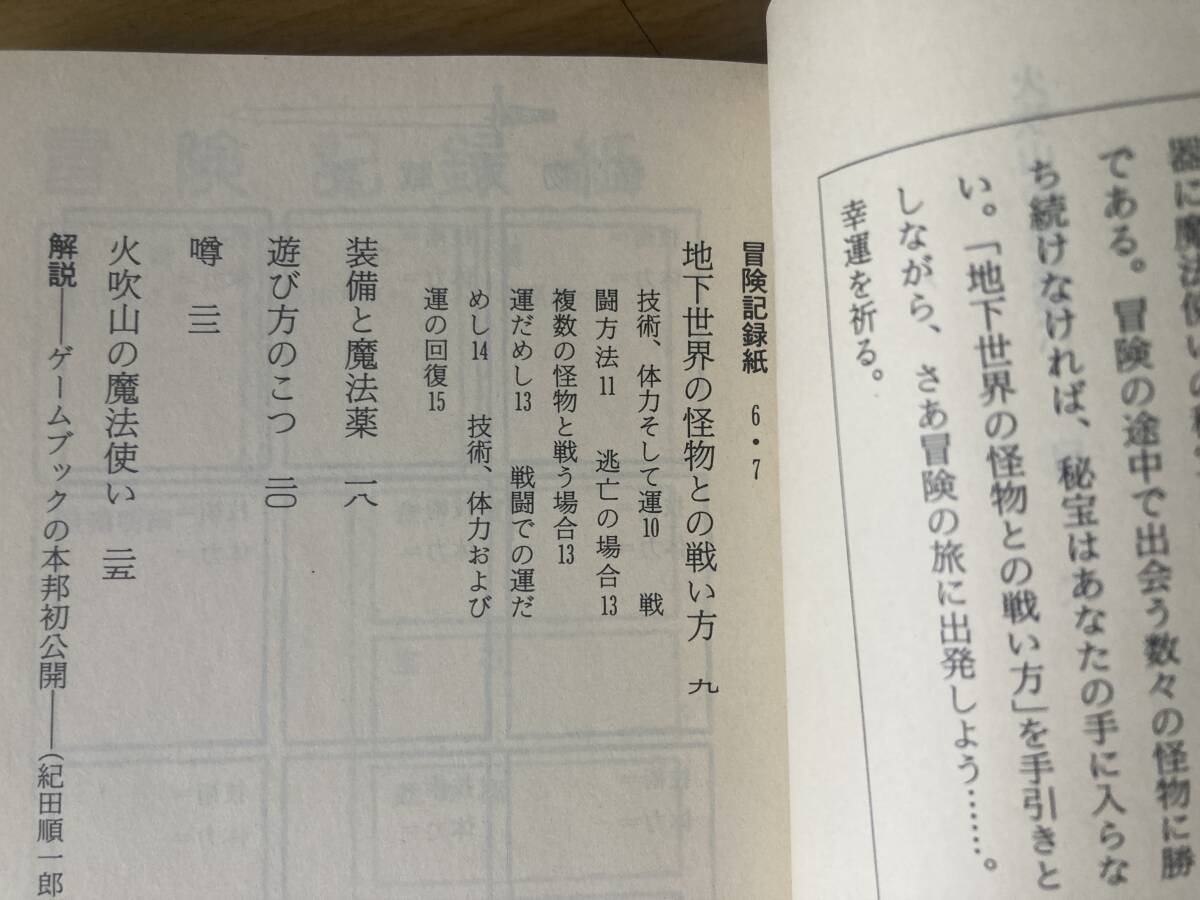 器に魔法使いの
である。冒険の途中で出会う数々の怪物に勝
ち続けなければ、秘宝はあなたの手に入らな
い。「地下世界の怪物との戦い方」を手引きと
しながら、さあ冒険の旅に出発しよう……。
幸運を祈る。
冒険記録紙 6・7
地下世界の怪物との戦い方 九
技術、体力そして運10 戦
闘方法11 逃亡の場合13
複数の怪物と戦う場合13
運だめし13 戦闘での運だ
めし14 技術、体力および
運の回復15
装備と魔法薬 一八
遊び方のこつ 二〇
噂 二三
火吹山の魔法使い 二五
解説――ゲームブックの本邦初公開――(紀田順一郎